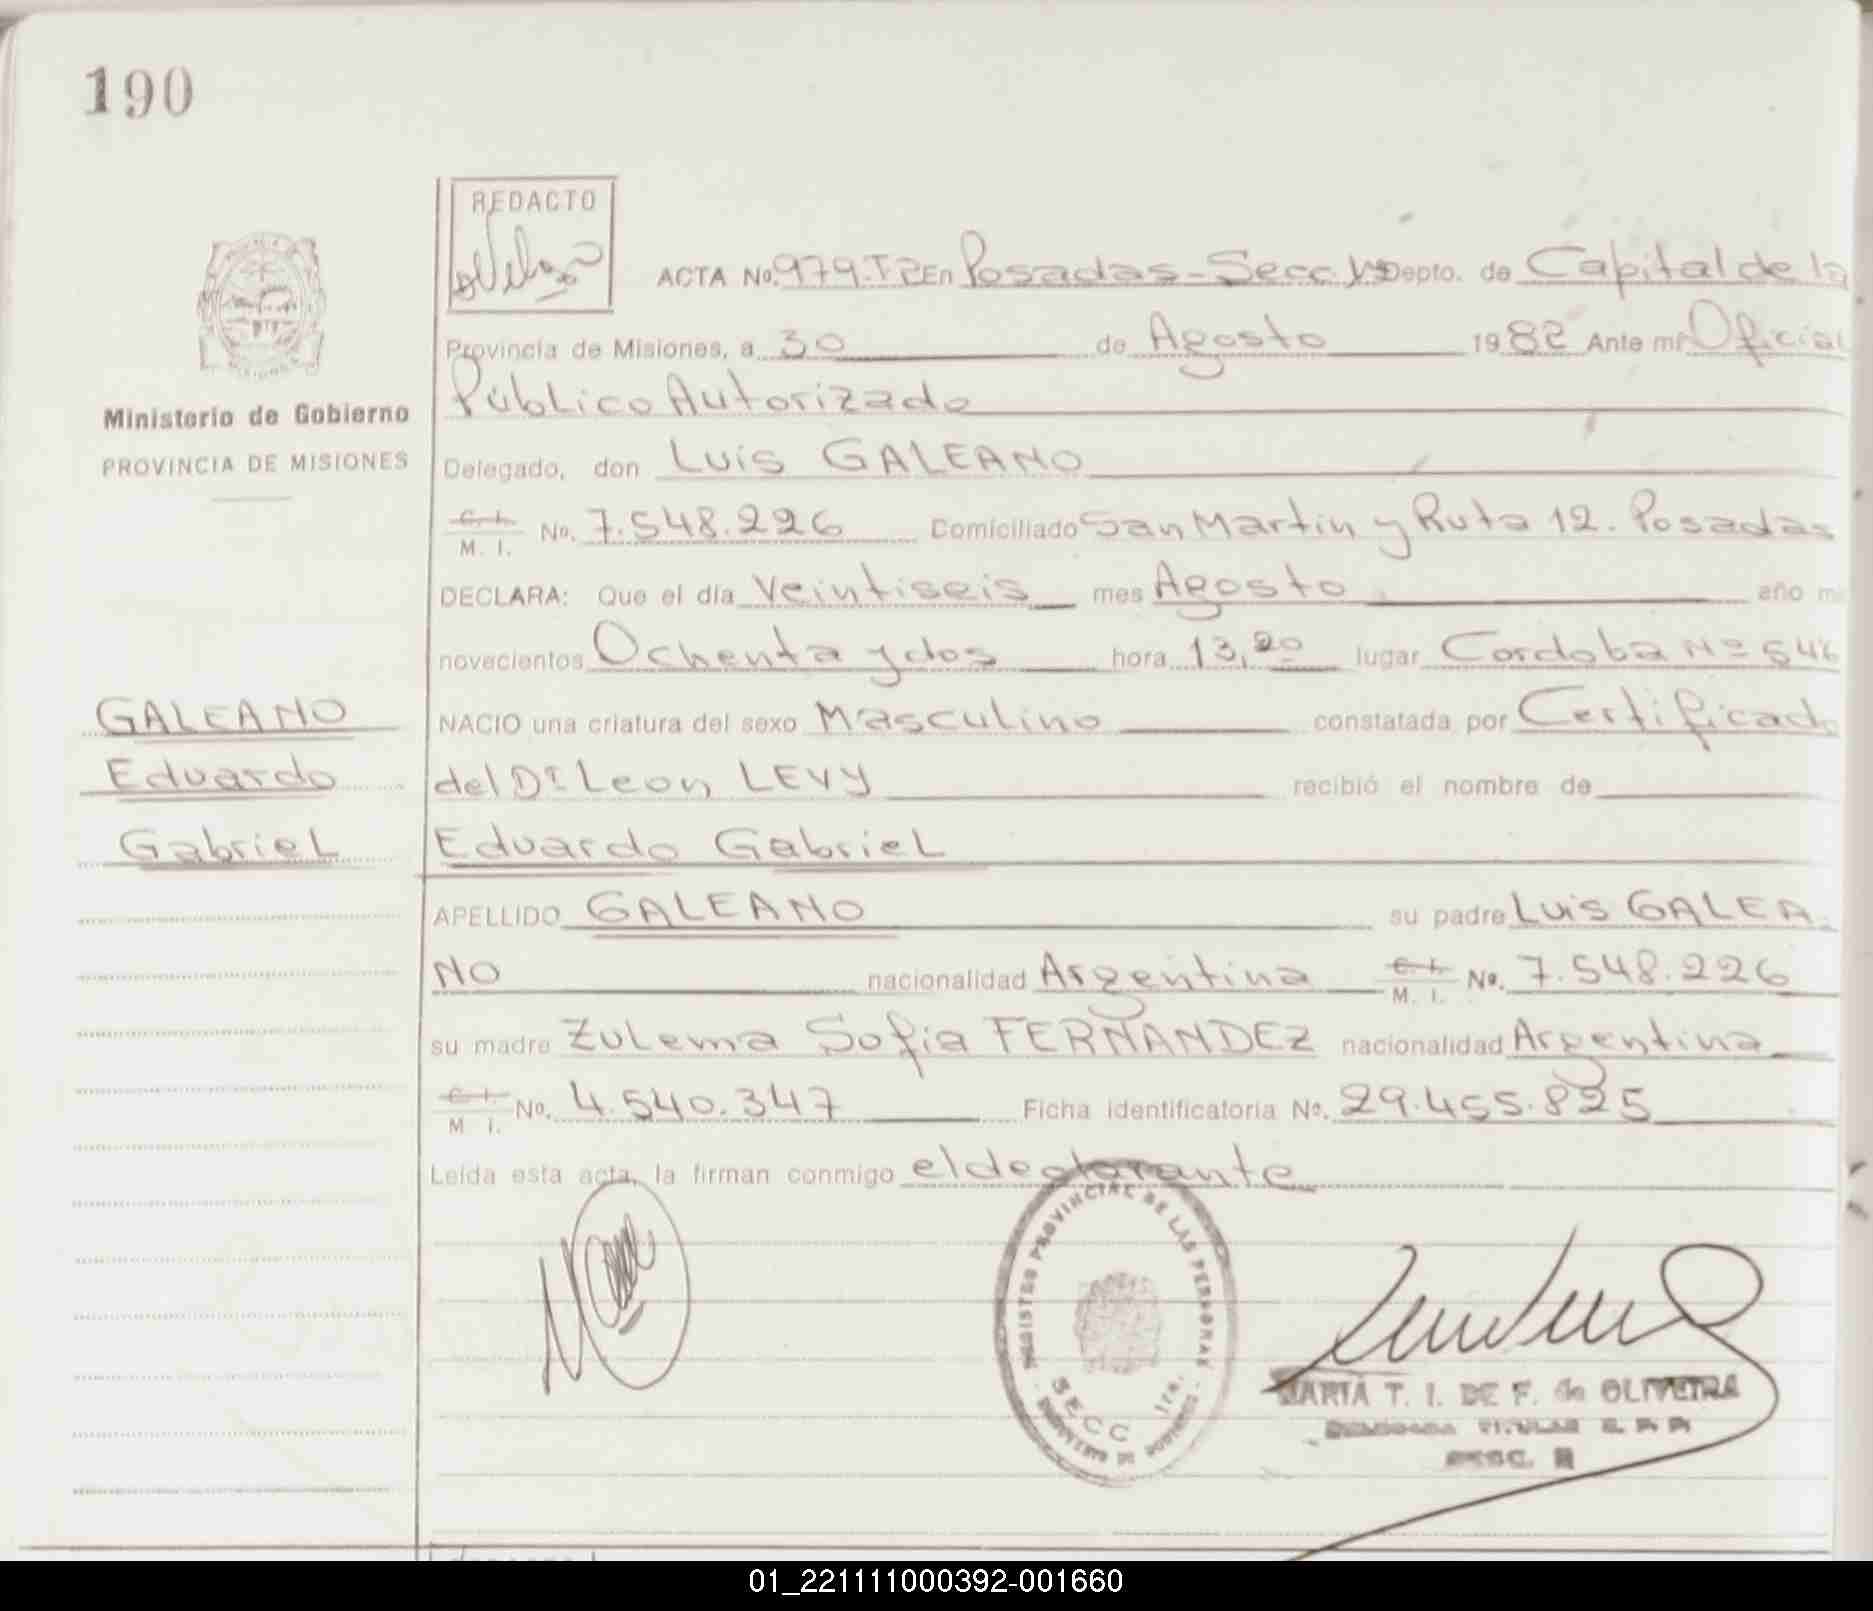 190
REDACTO
ACTA No. 979.T2 En Posadas - Secc. 1ª Depto. de Capital de la
Provincia de Misiones, a 30 de Agosto 1982 Ante mí Oficial
Público Autorizado
Ministerio de Gobierno
PROVINCIA DE MISIONES
Delegado, don Luis GALEANO
C. I. M. I. No. 7.548.226 Domiciliado San Martin y Ruta 12. Posadas
DECLARA: Que el día Veintiseis mes Agosto año m
novecientos Ochenta y dos hora 13,20 lugar Cordoba Nº 646
NACIO una criatura del sexo Masculino constatada por Certificado
del Dr Leon LEVY recibió el nombre de
Eduardo Gabriel
GALEANO
Eduardo
Gabriel
APELLIDO GALEANO su padre Luis GALEA-
NO nacionalidad Argentina C. I. M. I. No. 7.548.226
su madre Zulema Sofia FERNANDEZ nacionalidad Argentina
C. I. M I. No. 4.540.347 Ficha identificatoria No. 29.455.825
Leída esta acta, la firman conmigo el declarante
REGISTRO PROVINCIAL DE LAS PERSONAS
SECC 1ra.
MINISTERIO DE GOBIERNO
MARIA T. I. DE F. de OLIVEIRA
DELEGADA TITULAR R. P. P.
SECC.
01_221111000392-001660